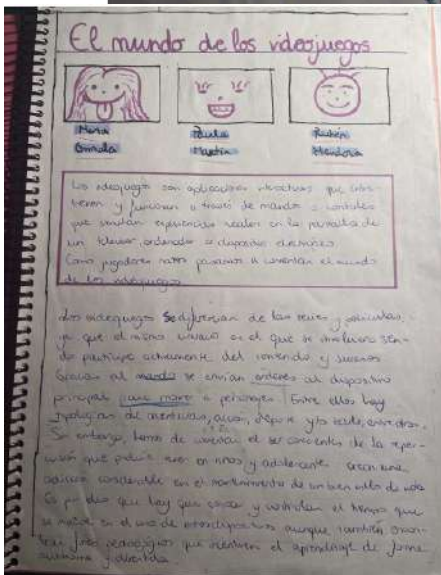 El mundo de los videojuegos
María Paula Rubén
Martín Mendoza
Los videojuegos son aplicaciones interactivas que
y funcionan a través de mandos o controles
que simulan experiencias reales en la pantalla de
un televisor, ordenador o dispositivo electrónico.
Como jugadores pasamos a comentar el mundo
de los videojuegos
Los videojuegos se diferencian de las series y películas,
ya que el mismo usuario es el que se
participe activamente del contenido y sucesos
Gracias al mando se envían ordenes al dispositivo
principal para mover a personajes. Entre ellos hay
tipologías de aventuras, deporte
Sin embargo, hemos de ser conscientes de la
que puede tener en niños y adolescentes
adicción considerable en el mantenimiento de un buen estilo de vida
Es por eso que hay que y controlar el tiempo que
se en el uso de aunque también
pedagógicos que el aprendizaje de forma
autónoma y divertida